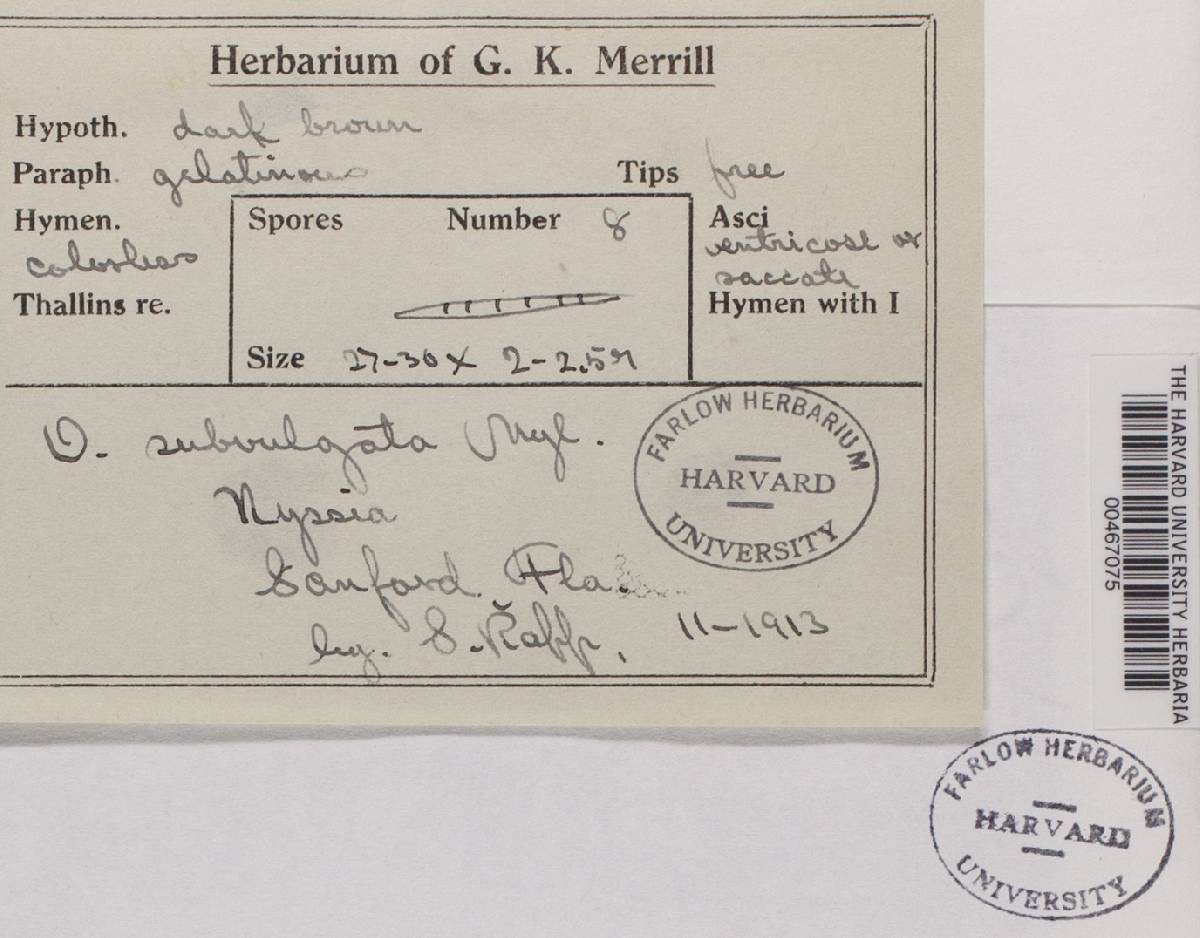 Herbarium of G. K. Merrill
Hypoth. dark brown
Paraph. gelatinous Tips free
Hymen. colorless
Thallins re.
Spores Number 8
Size 27-30 x 2-2.5μ
Asci ventricose or
saccate
Hymen with I
O. subvulgata Nyl.
Nyssia
Sanford Fla.
leg. S. Rapp, 11-1913
FARLOW HERBARIUM
HARVARD
UNIVERSITY
THE HARVARD UNIVERSITY HERBARIA
00467075
FARLOW HERBARIUM
HARVARD
UNIVERSITY